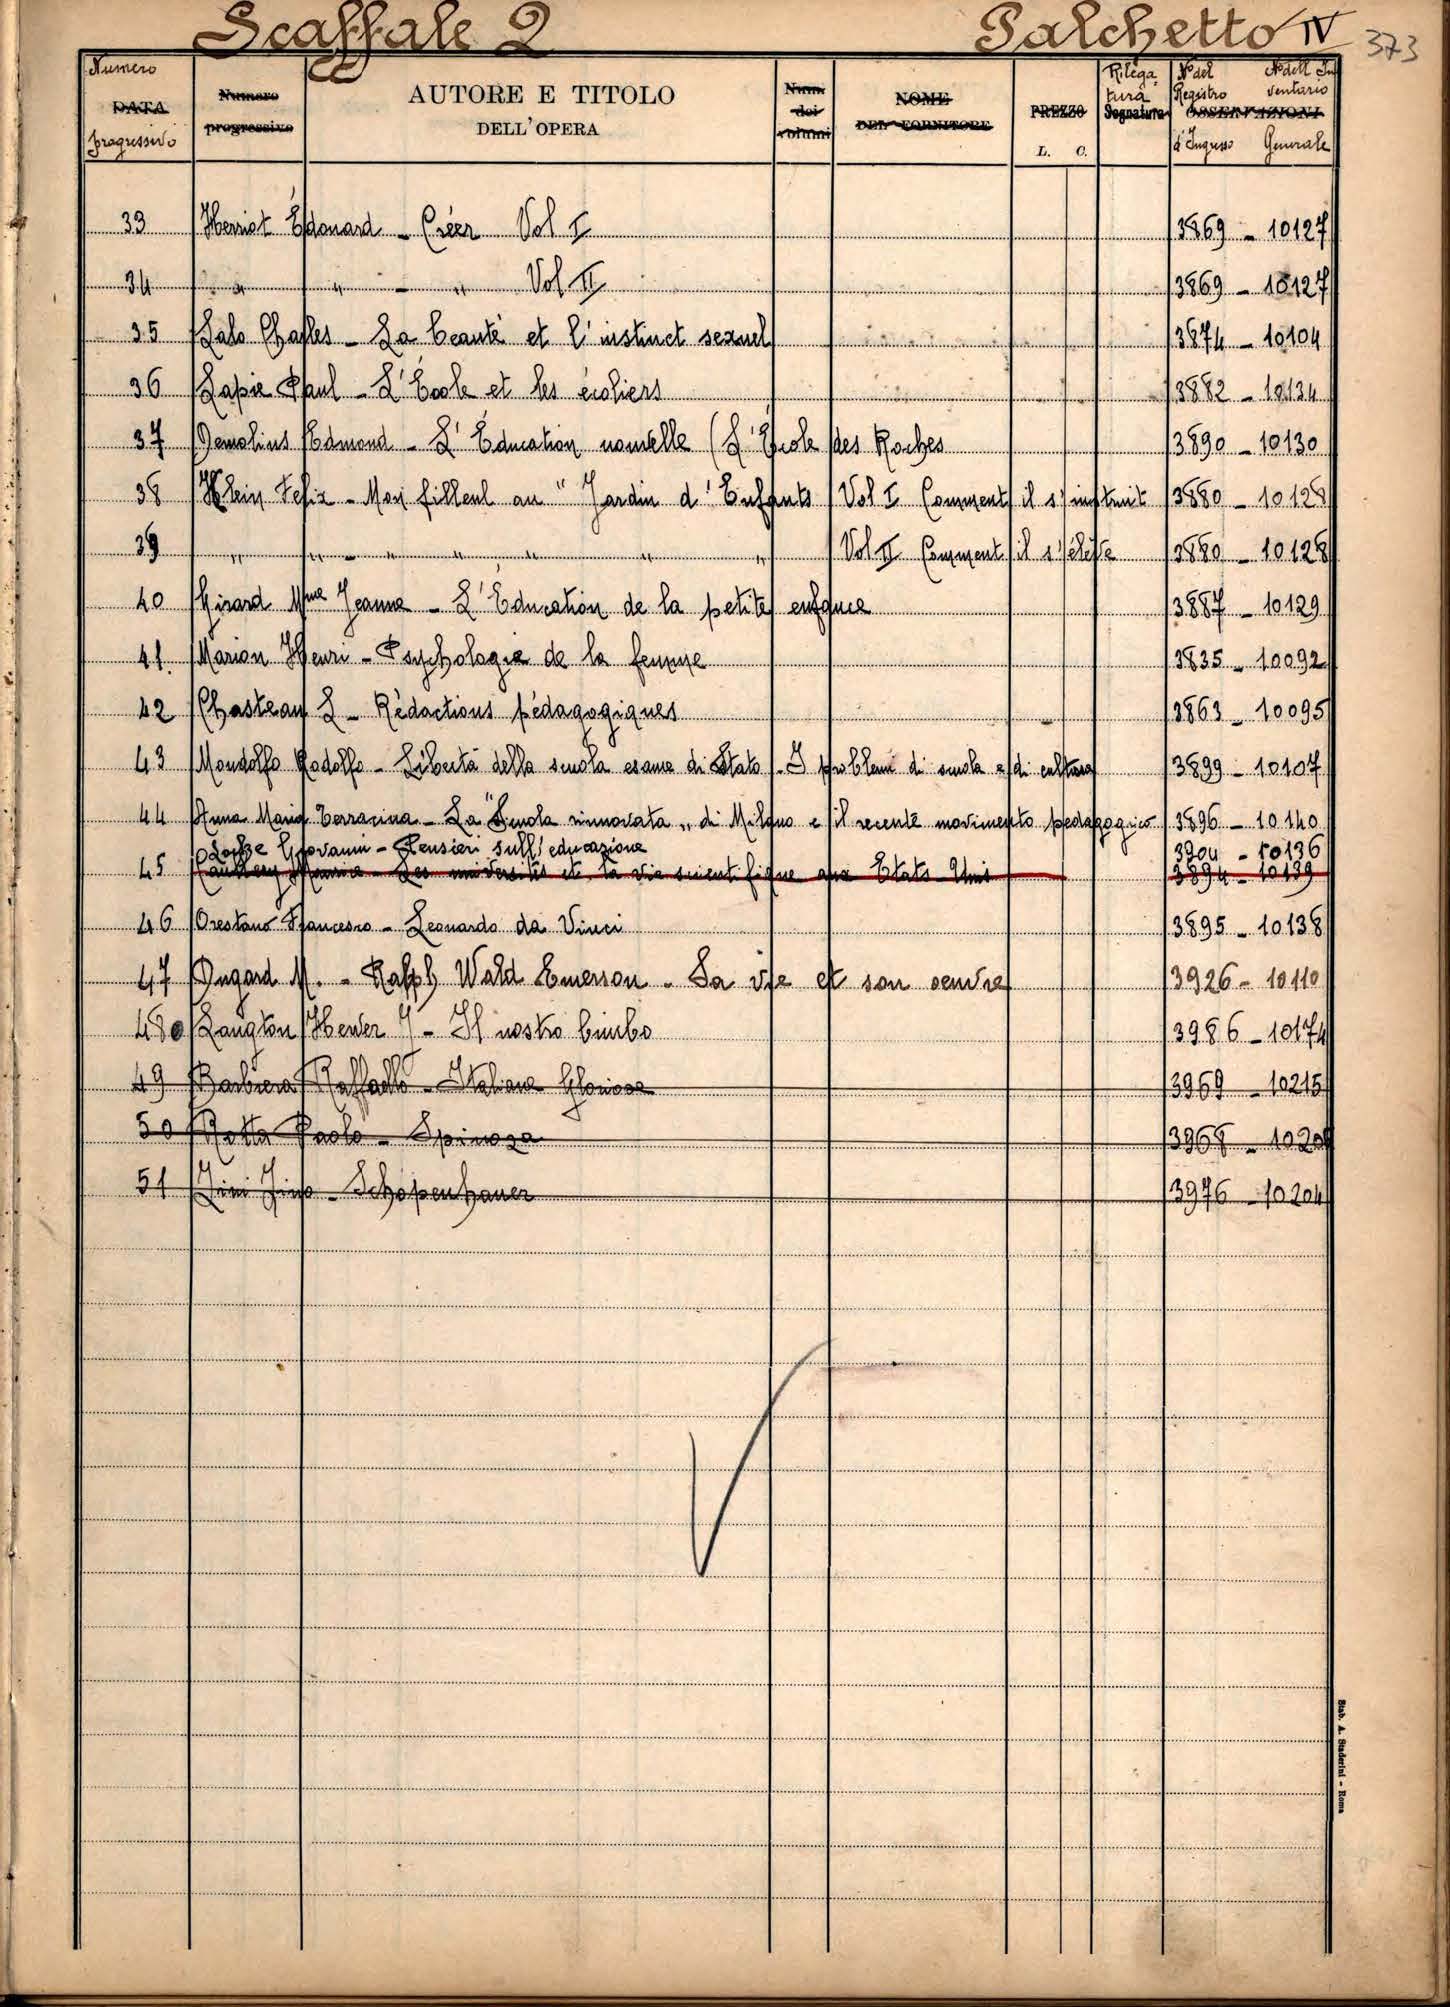 Scaffale 2 Palchetto IV 373
Numero DATA progressivo Numero progressivo AUTORE E TITOLO DELL'OPERA Num. dei volumi NOME DEL FORNITORE PREZZO L. C. Rilegatura Segnatura N° del Registro d'Ingresso OSSERVAZIONI N° dell'Inventario Generale
33 Herriot Édouard - Créer Vol I 3869 - 10127
34 " " - " Vol II 3869 - 10127
35 Lalo Charles - La beauté et l'instinct sexuel 3874 - 10104
36 Lapie Paul - L'École et les écoliers 3882 - 10134
37 Demolins Edmond - L'Éducation nouvelle (L'École des Roches 3890 - 10130
38 Klein Felix - Mon filleul au " Jardin d'Enfants Vol I Comment il s'instruit 3880 - 10128
39 " " - " " " " " Vol II Comment il s'élève 3880 - 10128
40 Girard Mme Jeanne - L'Éducation de la petite enfance 3887 - 10129
41 Marion Henri - Psychologie de la femme 3835 - 10092
42 Chasteau L - Rèdactions pèdagogiques 3863 - 10095
43 Mondolfo Rodolfo - Libertà della scuola esame di Stato - I problemi di scuola e di cultura 3899 - 10107
44 Anna Maria Terracina - La "Scuola rinnovata" di Milano e il recente movimento pedagogico 3896 - 10140
Locke Giovanni - Pensieri sull'educazione 3904 - 10136
45 Caullery Maurice - Les universités et la vie scientifique aux Etats-Unis 3894 - 10139
46 Orestano Francesco - Leonardo da Vinci 3895 - 10138
47 Dugard M. - Ralph Wald Emerson - Sa vie et son oeuvre 3926 - 10110
48 Langton Hewer J - Il nostro bimbo 3986 - 10174
49 Barbiera Raffaello - Italiane Gloriose 3969 - 10215
50 Rotta Paolo - Spinoza 3968
51 Zini Zino - Schopenhauer 3976 - 10204
Stab. A. Staderini - Roma